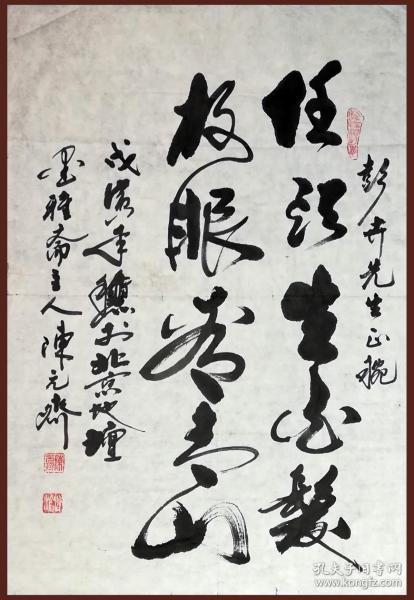 彭卉先生正腕
任头生白发
放眼看青山
戊 年 于北京地坛
墨雅斋主人陳元齋
孔夫子旧书网
www.kongfz.com